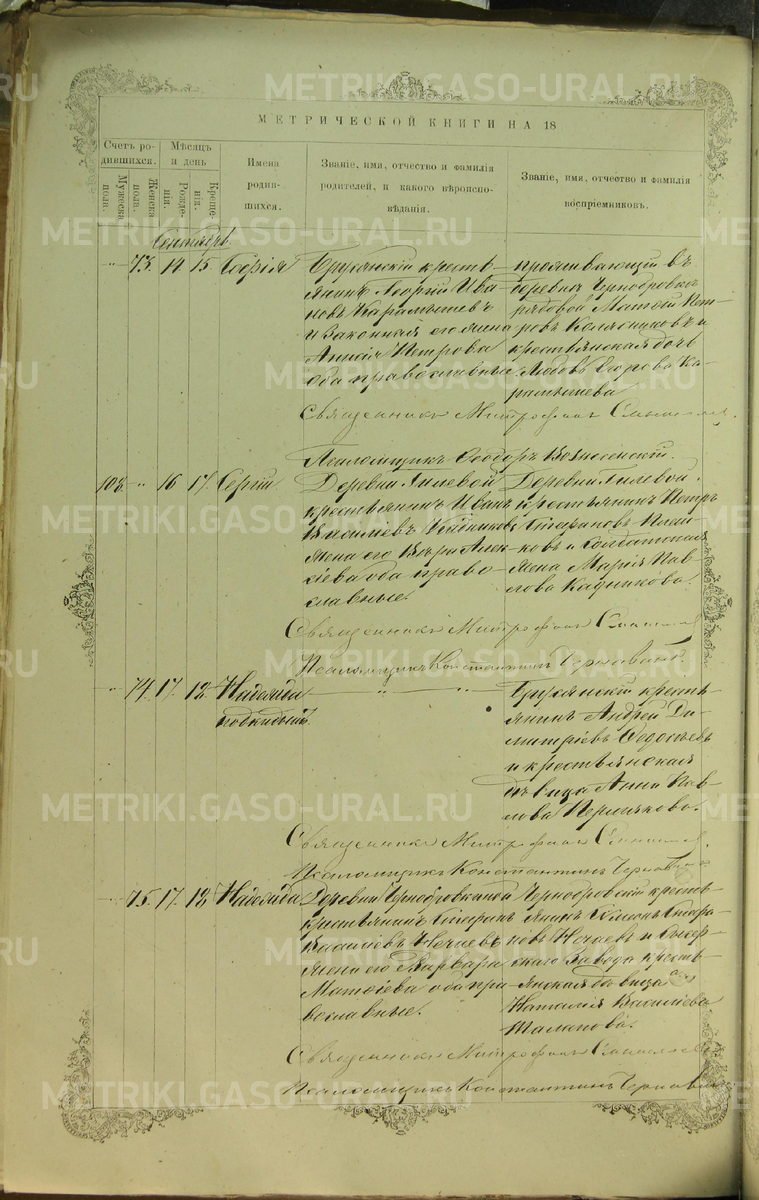 METRIKI.GASO-URAL.RU
МЕТРИЧЕСКОЙ КНИГИ НА 18
Счетъ ро-
дившихся.
Мужеска
пола.
Женска
пола.
Мѣсяцъ
и день
Рожде-
нія.
Креще-
нія.
Имена
родив-
шихся.
Званіе, имя, отчество и фамилія
родителей, и какого вѣроиспо-
вѣданія.
Званіе, имя, отчество и фамилія
воспріемниковъ.
Сентябрь
" 73. 14 15. Софія
крестъ-
янинъ Георгій Ива-
новъ Карамышевъ
и законная его жена
Анна Петрова
оба православные
проживающій въ
деревнѣ
рядовой Матвѣй Пет-
ровъ Колясниковъ и
крестьянская дочь
Любовь Егорова Ка-
рамышева
Священникъ Митрофанъ
Псаломщикъ Ѳеодоръ Вознесенскій.
108. " 16 17. Сергій
Деревни Гилевой
крестьянинъ Иванъ
Васильевъ
жена его Вѣра Алек-
сіева оба право-
славные.
Деревни Гилевой
крестьянинъ Петръ
Стефановъ
и солдатская
жена Марія Пав-
лова Кадникова.
Священникъ Митрофанъ
Псаломщикъ Константинъ
" 74. 17. 18. Надежда
подкидышъ.
" "
крестъ-
янинъ Андрей Ди-
митріевъ Ѳедосѣевъ
и крестьянская
дѣвица Анна Пав-
лова Пермякова.
Священникъ Митрофанъ
Псаломщикъ Константинъ
75. 17. 18. Надежда
Деревни
крестьянинъ Стефанъ
Василіевъ Нечаевъ
жена его Варвара
Матвѣева оба пра-
вославные.
кресть-
янинъ Стефа-
новъ Нечаевъ и Сысер-
скаго завода кресть-
янская дѣвица
Наталія Василіева
Талапова.
Священникъ Митрофанъ
Псаломщикъ Константинъ